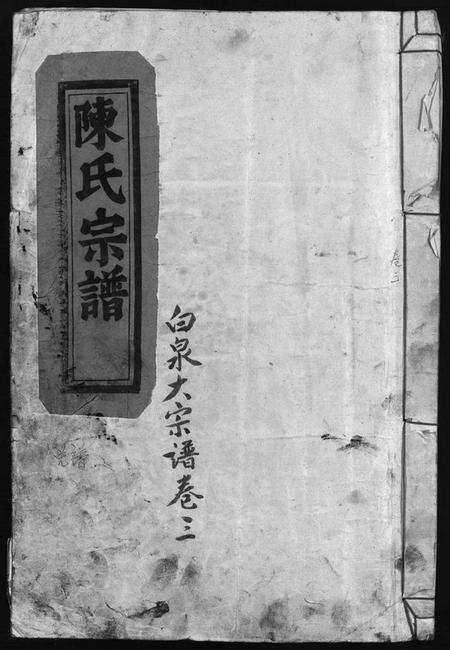 陳氏宗譜
白泉大宗譜卷三
卷三